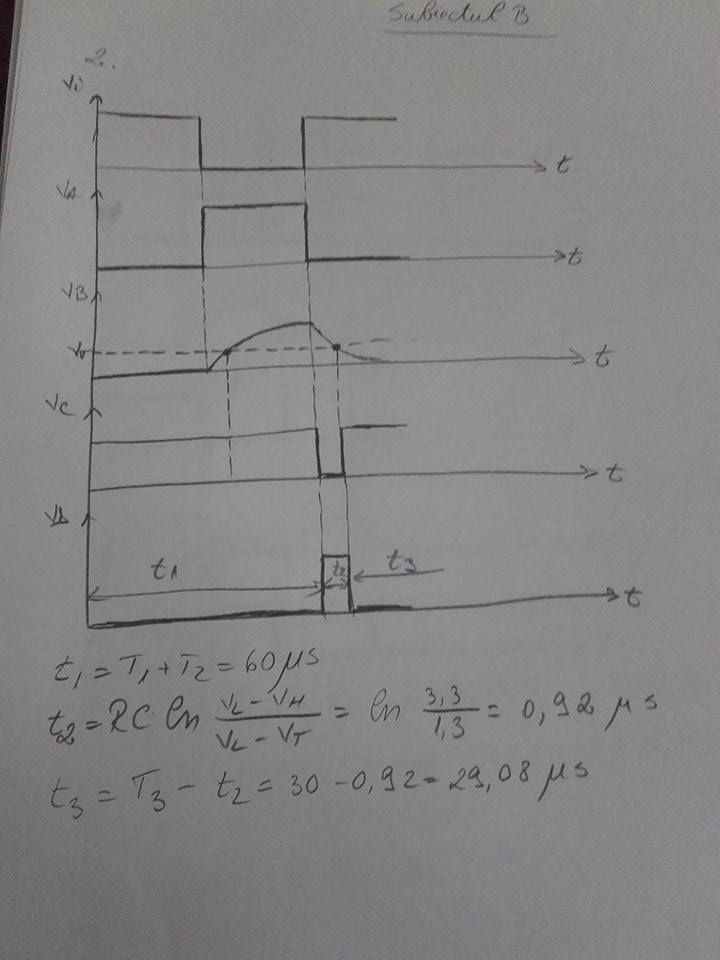 Subiectul B
2.
t
VA
t
VB
t
VC
t
t1 t2 t3
t
t1 = T1 + T2 = 60 μs
t2 = RC ln (VL - VH)/(VL - VT) = ln 3,3/1,3 = 0,92 μs
t3 = T3 - t2 = 30 - 0,92 = 29,08 μs